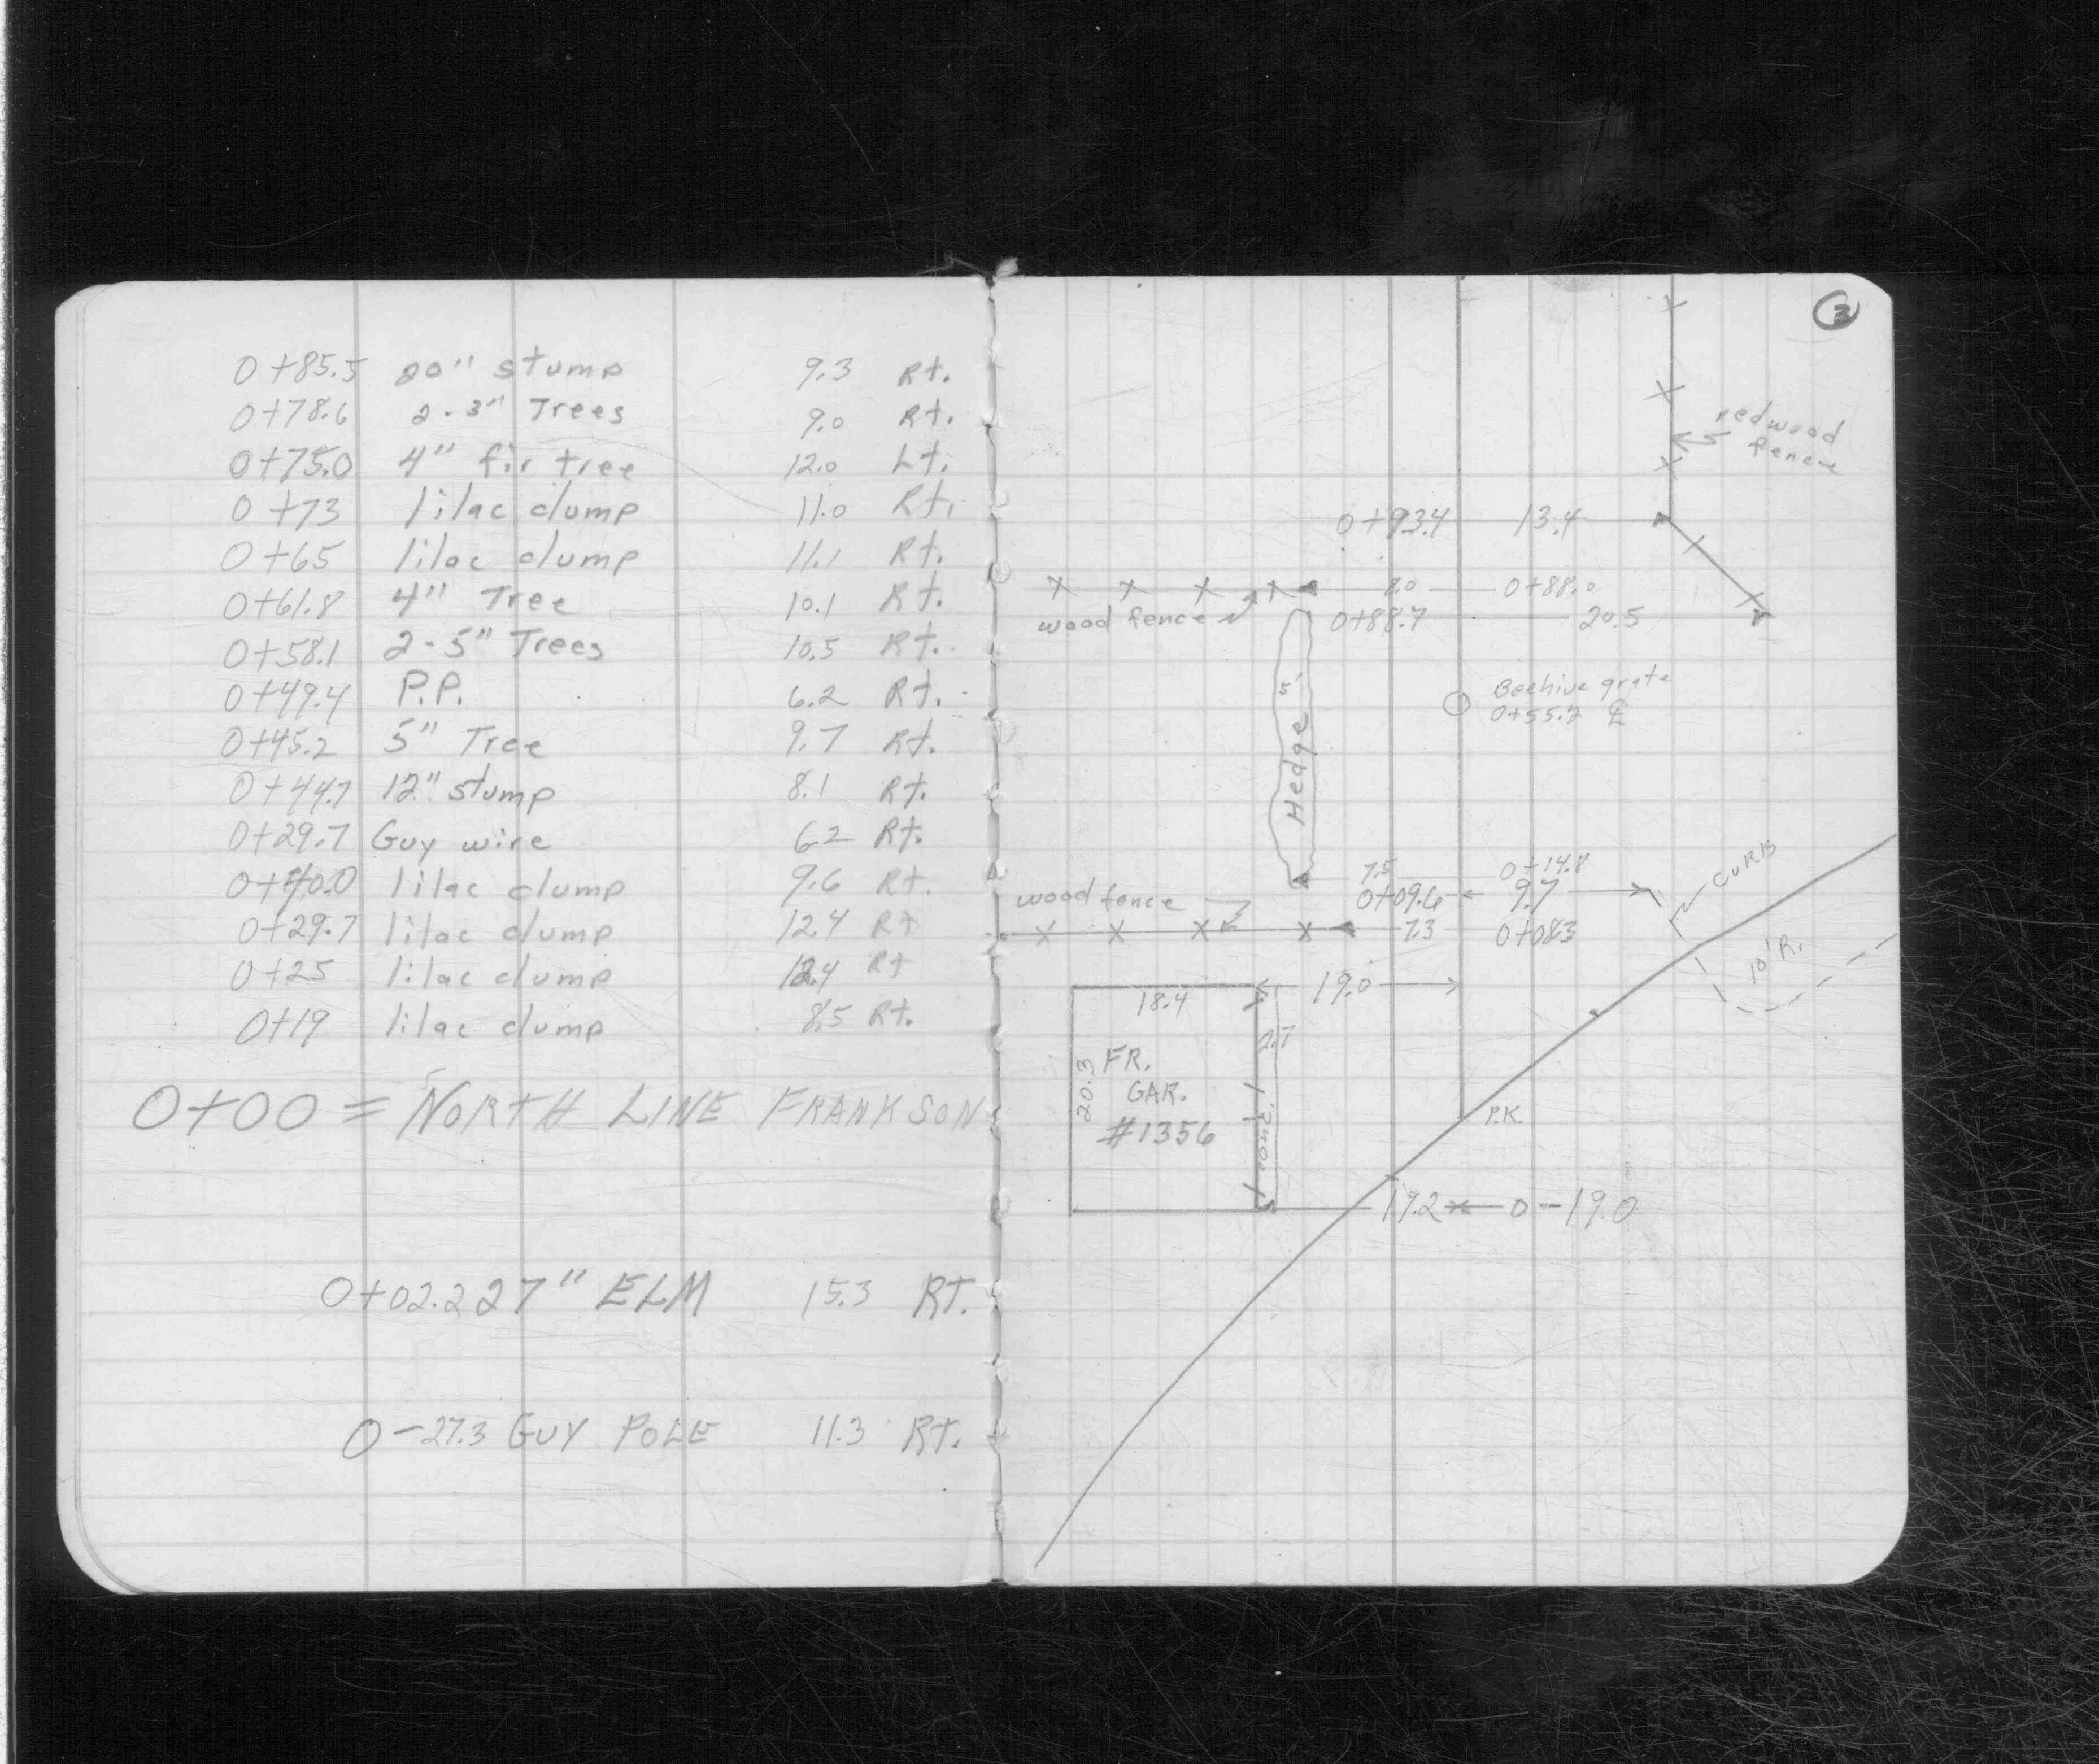 0+85.5 20" stump 9.3 Rt.
0+78.6 2-3" Trees 9.0 Rt.
0+75.0 4" fir tree 12.0 Lt.
0+73 lilac clump 11.0 Rt.
0+65 lilac clump 11.1 Rt.
0+61.8 4" Tree 10.1 Rt.
0+58.1 2-5" Trees 10.5 Rt.
0+49.4 P.P. 6.2 Rt.
0+45.2 5" Tree 9.7 Rt.
0+44.7 12" stump 8.1 Rt.
0+29.7 Guy wire 6.2 Rt.
0+40.0 lilac clump 9.6 Rt.
0+29.7 lilac clump 12.4 Rt
0+25 lilac clump 12.4 Rt
0+19 lilac clump 8.5 Rt.
0+00 = NORTH LINE FRANKSON
0+02.2 27" ELM 15.3 RT.
0-27.3 GUY POLE 11.3 RT.
3
redwood
fence
0+93.4 13.4
8.0 0+88.0
wood fence 0+88.7 20.5
Beehive grate
0+55.2 ℄
Hedge 5'
CURB
7.5 0+14.8
wood fence 0+09.6 9.7
7.3 0+08.3
10' R.
19.0
18.4
2.7
20.3
FR.
GAR.
#1356
P.K.
19.2 0-19.0